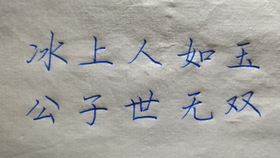 冰上人如玉
公子世无双